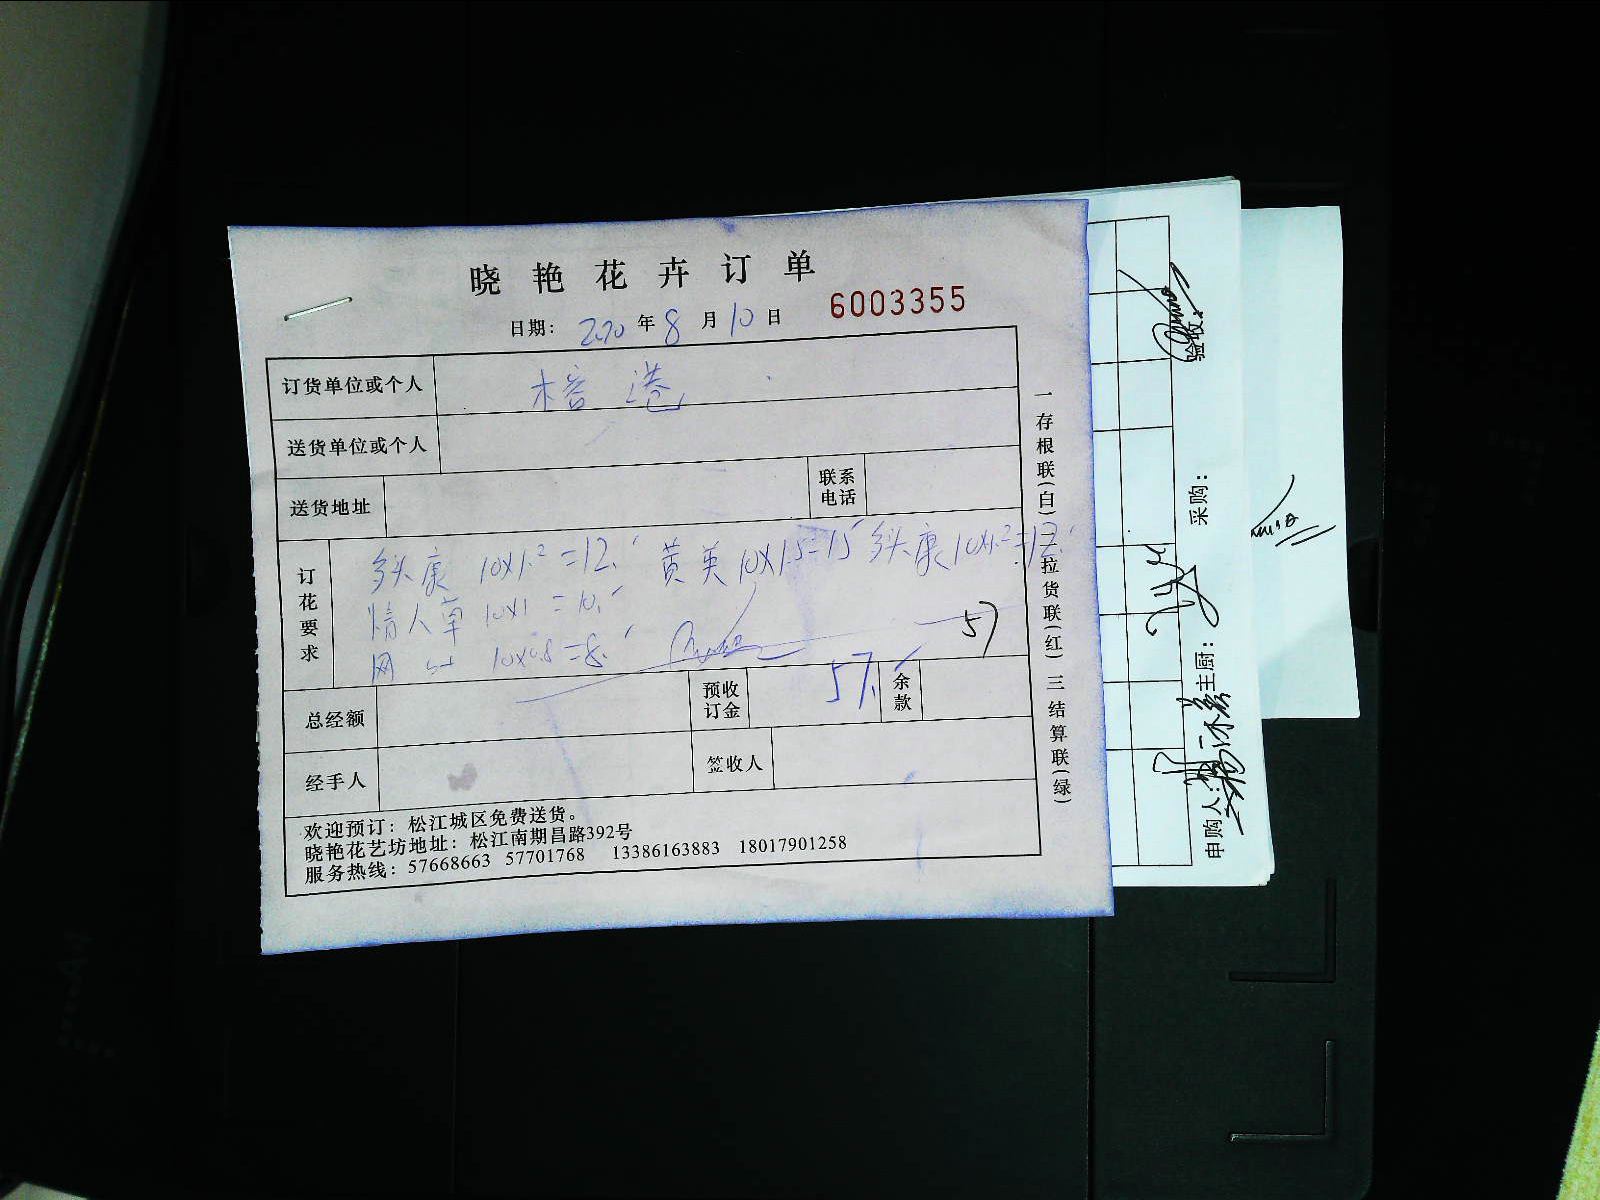 晓艳花卉订单
日期: 2020 年 8 月 10 日 6003355
订货单位或个人 榕港
送货单位或个人
送货地址 联系电话
订花要求
多头康 10X1.2=12. 黄英 10X1.5=15 多头康 10X1.2=12.
情人草 10X1=10.
网 10X0.8=8.
57
总经额 预收订金 57. 余款
经手人 签收人
欢迎预订: 松江城区免费送货。
晓艳花艺坊地址: 松江南期昌路392号
服务热线: 57668663 57701768 13386163883 18017901258
一存根联(白)二拉货联(红)三结算联(绿)
申购人: 主厨: 采购: 验收: